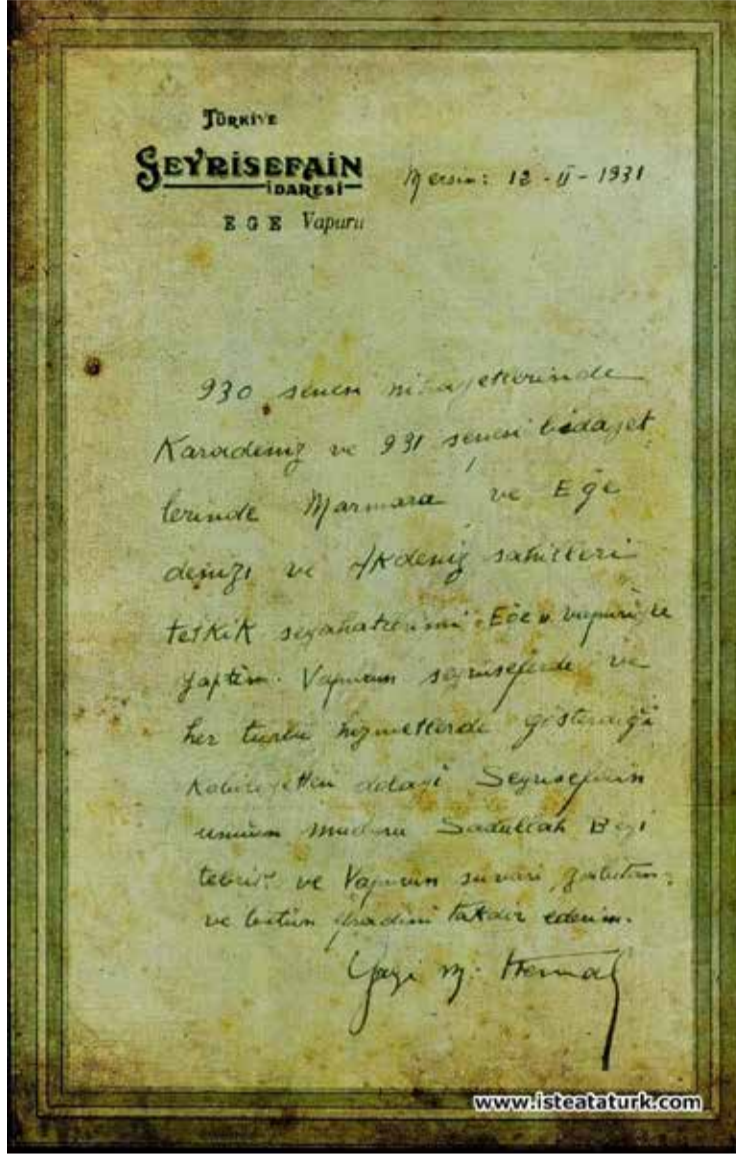 TÜRKİYE
SEYRİSEFAİN
İDARESİ
EGE Vapuru
Mersin: 12-II-1931
930 senesi nihayetlerinde
Karadeniz ve 931 senesi bidayet
lerinde Marmara ve Eğe
denizi ve Akdeniz sahilleri
tetkik seyahatlerimi Eğe vapuru ile
yaptım. Vapurun seyrüseferde ve
her türlü hizmetlerde gösterdiği
kabiliyetten dolayı Seyrisefain
umum müdürü Sadullah Beyi
tebrik ve Vapurun süvari, zabitan,
ve bütün efradını takdir ederim.
Gazi M. Kemal
www.isteataturk.com